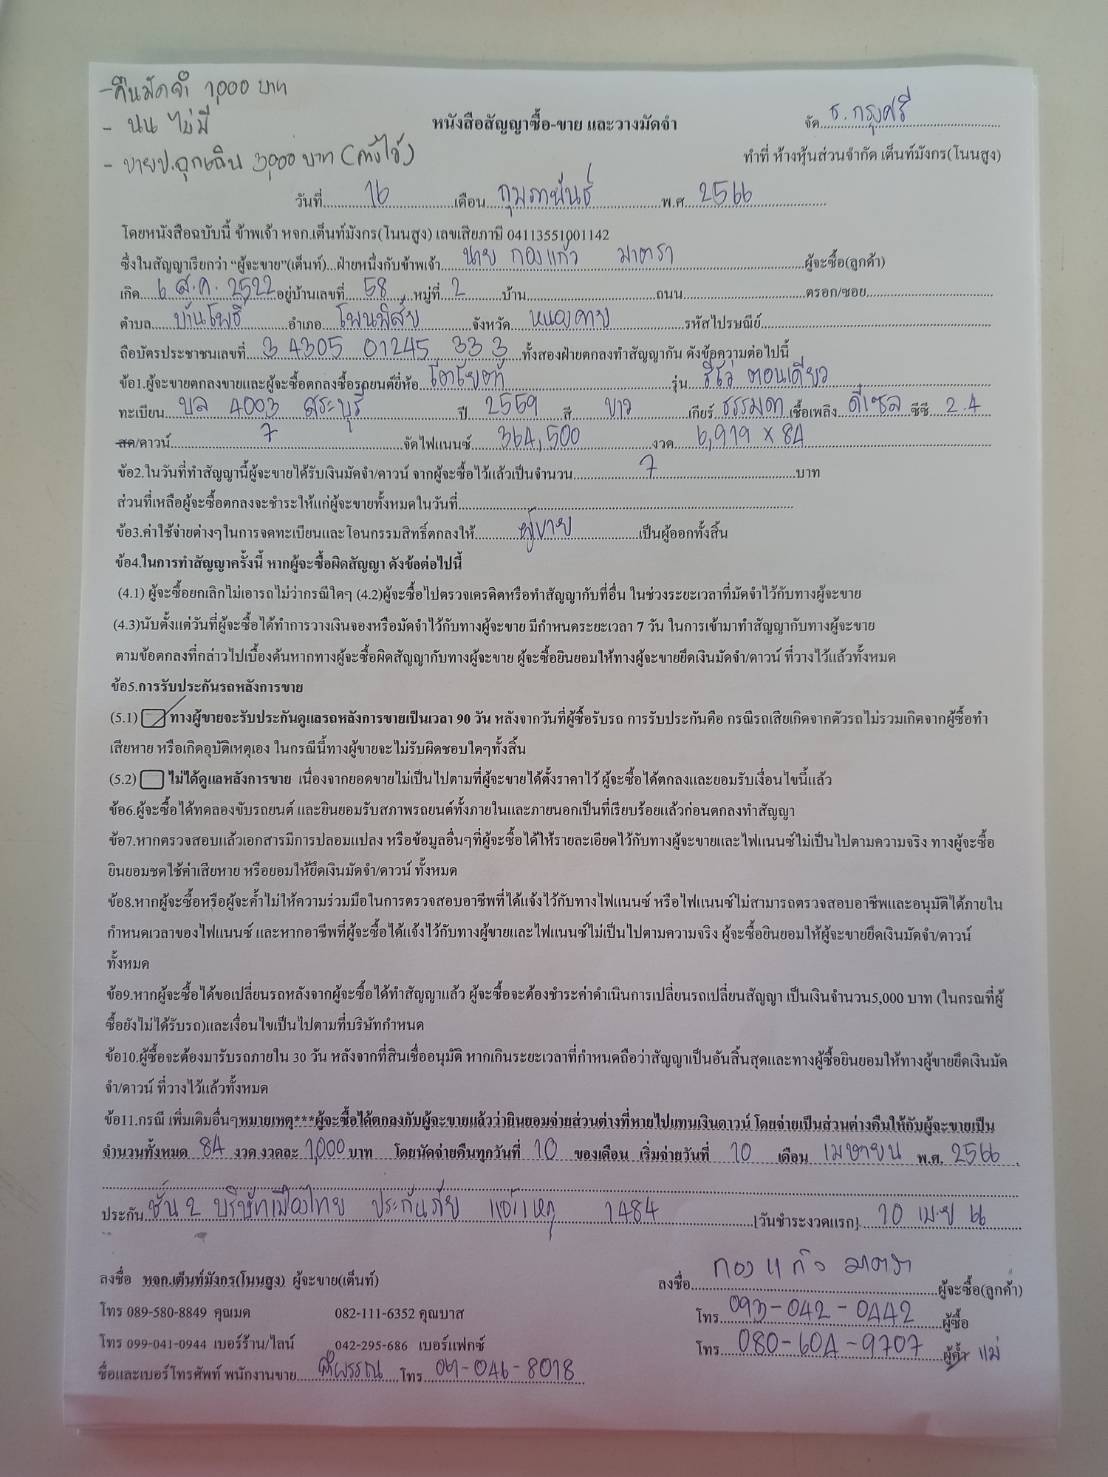 -คืนมัดจำ 1,000 บาท
- นน ไม่มี
- ขายป.ฉุกเฉิน 3,000 บาท (ตั้งไว้)
หนังสือสัญญาซื้อ-ขาย และวางมัดจำ
จัด ธ.กรุงศรี
ทำที่ ห้างหุ้นส่วนจำกัด เต็นท์มังกร(โนนสูง)
วันที่ 16 เดือน กุมภาพันธ์ พ.ศ. 2566
โดยหนังสือฉบับนี้ ข้าพเจ้า หจก.เต็นท์มังกร(โนนสูง) เลขเสียภาษี 04113551001142
ซึ่งในสัญญาเรียกว่า "ผู้จะขาย"(เต็นท์)...ฝ่ายหนึ่งกับข้าพเจ้า นาย กองแก้ว มาตรา ผู้จะซื้อ(ลูกค้า)
เกิด 6 ส.ค. 2522 อยู่บ้านเลขที่ 58 หมู่ที่ 2 บ้าน ถนน ตรอก/ซอย
ตำบล บ้านโพธิ์ อำเภอ โพนพิสัย จังหวัด หนองคาย รหัสไปรษณีย์
ถือบัตรประชาชนเลขที่ 3 4305 01245 33 3 ทั้งสองฝ่ายตกลงทำสัญญากัน ดังข้อความต่อไปนี้
ข้อ1.ผู้จะขายตกลงขายและผู้จะซื้อตกลงซื้อรถยนต์ยี่ห้อ โตโยต้า รุ่น รีโว่ ตอนเดียว
ทะเบียน บล 4003 สระบุรี ปี 2559 สี ขาว เกียร์ ธรรมดา เชื้อเพลิง ดีเซล ซีซี 2.4
สด/ดาวน์ 7 จัดไฟแนนซ์ 364,500 งวด 6,919 x 84
ข้อ2.ในวันที่ทำสัญญานี้ผู้จะขายได้รับเงินมัดจำ/ดาวน์ จากผู้จะซื้อไว้แล้วเป็นจำนวน 7 บาท
ส่วนที่เหลือผู้จะซื้อตกลงจะชำระให้แก่ผู้จะขายทั้งหมดในวันที่
ข้อ3.ค่าใช้จ่ายต่างๆในการจดทะเบียนและโอนกรรมสิทธิ์ตกลงให้ ผู้ขาย เป็นผู้ออกทั้งสิ้น
ข้อ4.ในการทำสัญญาครั้งนี้ หากผู้จะซื้อผิดสัญญา ดังข้อต่อไปนี้
(4.1) ผู้จะซื้อยกเลิกไม่เอารถไม่ว่ากรณีใดๆ (4.2)ผู้จะซื้อไปตรวจเครดิตหรือทำสัญญากับที่อื่น ในช่วงระยะเวลาที่มัดจำไว้กับทางผู้จะขาย
(4.3)นับตั้งแต่วันที่ผู้จะซื้อได้ทำการวางเงินจองหรือมัดจำไว้กับทางผู้จะขาย มีกำหนดระยะเวลา 7 วัน ในการเข้ามาทำสัญญากับทางผู้จะขาย
ตามข้อตกลงที่กล่าวไปเบื้องต้นหากทางผู้จะซื้อผิดสัญญากับทางผู้จะขาย ผู้จะซื้อยินยอมให้ทางผู้จะขายยึดเงินมัดจำ/ดาวน์ ที่วางไว้แล้วทั้งหมด
ข้อ5.การรับประกันรถหลังการขาย
(5.1) ทางผู้ขายจะรับประกันดูแลรถหลังการขายเป็นเวลา 90 วัน หลังจากวันที่ผู้ซื้อรับรถ การรับประกันคือ กรณีรถเสียเกิดจากตัวรถไม่รวมเกิดจากผู้ซื้อทำ
เสียหาย หรือเกิดอุบัติเหตุเอง ในกรณีนี้ทางผู้ขายจะไม่รับผิดชอบใดๆทั้งสิ้น
(5.2) ไม่ได้ดูแลหลังการขาย เนื่องจากยอดขายไม่เป็นไปตามที่ผู้จะขายได้ตั้งราคาไว้ ผู้จะซื้อได้ตกลงและยอมรับเงื่อนไขนี้แล้ว
ข้อ6.ผู้จะซื้อได้ทดลองขับรถยนต์ และยินยอมรับสภาพรถยนต์ทั้งภายในและภายนอกเป็นที่เรียบร้อยแล้วก่อนตกลงทำสัญญา
ข้อ7.หากตรวจสอบแล้วเอกสารมีการปลอมแปลง หรือข้อมูลอื่นๆที่ผู้จะซื้อได้ให้รายละเอียดไว้กับทางผู้จะขายและไฟแนนซ์ไม่เป็นไปตามความจริง ทางผู้จะซื้อ
ยินยอมชดใช้ค่าเสียหาย หรือยอมให้ยึดเงินมัดจำ/ดาวน์ ทั้งหมด
ข้อ8.หากผู้จะซื้อหรือผู้จะค้ำไม่ให้ความร่วมมือในการตรวจสอบอาชีพที่ได้แจ้งไว้กับทางไฟแนนซ์ หรือไฟแนนซ์ไม่สามารถตรวจสอบอาชีพและอนุมัติได้ภายใน
กำหนดเวลาของไฟแนนซ์ และหากอาชีพที่ผู้จะซื้อได้แจ้งไว้กับทางผู้ขายและไฟแนนซ์ไม่เป็นไปตามความจริง ผู้จะซื้อยินยอมให้ผู้จะขายยึดเงินมัดจำ/ดาวน์
ทั้งหมด
ข้อ9.หากผู้จะซื้อได้ขอเปลี่ยนรถหลังจากผู้จะซื้อได้ทำสัญญาแล้ว ผู้จะซื้อจะต้องชำระค่าดำเนินการเปลี่ยนรถเปลี่ยนสัญญา เป็นเงินจำนวน5,000 บาท (ในกรณีที่ผู้
ซื้อยังไม่ได้รับรถ)และเงื่อนไขเป็นไปตามที่บริษัทกำหนด
ข้อ10.ผู้ซื้อจะต้องมารับรถภายใน 30 วัน หลังจากที่สินเชื่ออนุมัติ หากเกินระยะเวลาที่กำหนดถือว่าสัญญาเป็นอันสิ้นสุดและทางผู้ซื้อยินยอมให้ทางผู้ขายยึดเงินมัด
จำ/ดาวน์ ที่วางไว้แล้วทั้งหมด
ข้อ11.กรณี เพิ่มเติมอื่นๆหมายเหตุ***ผู้จะซื้อได้ตกลงกับผู้จะขายแล้วว่ายินยอมจ่ายส่วนต่างที่หายไปแทนเงินดาวน์ โดยจ่ายเป็นส่วนต่างคืนให้กับผู้จะขายเป็น
จำนวนทั้งหมด 84 งวด งวดละ 1,000 บาท โดยนัดจ่ายคืนทุกวันที่ 10 ของเดือน เริ่มจ่ายวันที่ 10 เดือน เมษายน พ.ศ. 2566
ประกัน ชั้น 2 บริษัทเมืองไทย ประกันภัย แจ้งเหตุ 1484 [วันชำระงวดแรก] 10 เม.ย 66
ลงชื่อ หจก.เต็นท์มังกร(โนนสูง) ผู้จะขาย(เต็นท์)
ลงชื่อ กองแก้ว มาตรา ผู้จะซื้อ(ลูกค้า)
โทร 089-580-8849 คุณมด 082-111-6352 คุณบาส
โทร 093-042-0442 ผู้ซื้อ
โทร 099-041-0944 เบอร์ร้าน/ไลน์ 042-295-686 เบอร์แฟกซ์
โทร 080-604-9707 ผู้ค้ำ แม่
ชื่อและเบอร์โทรศัพท์ พนักงานขาย โทร 061-046-8018